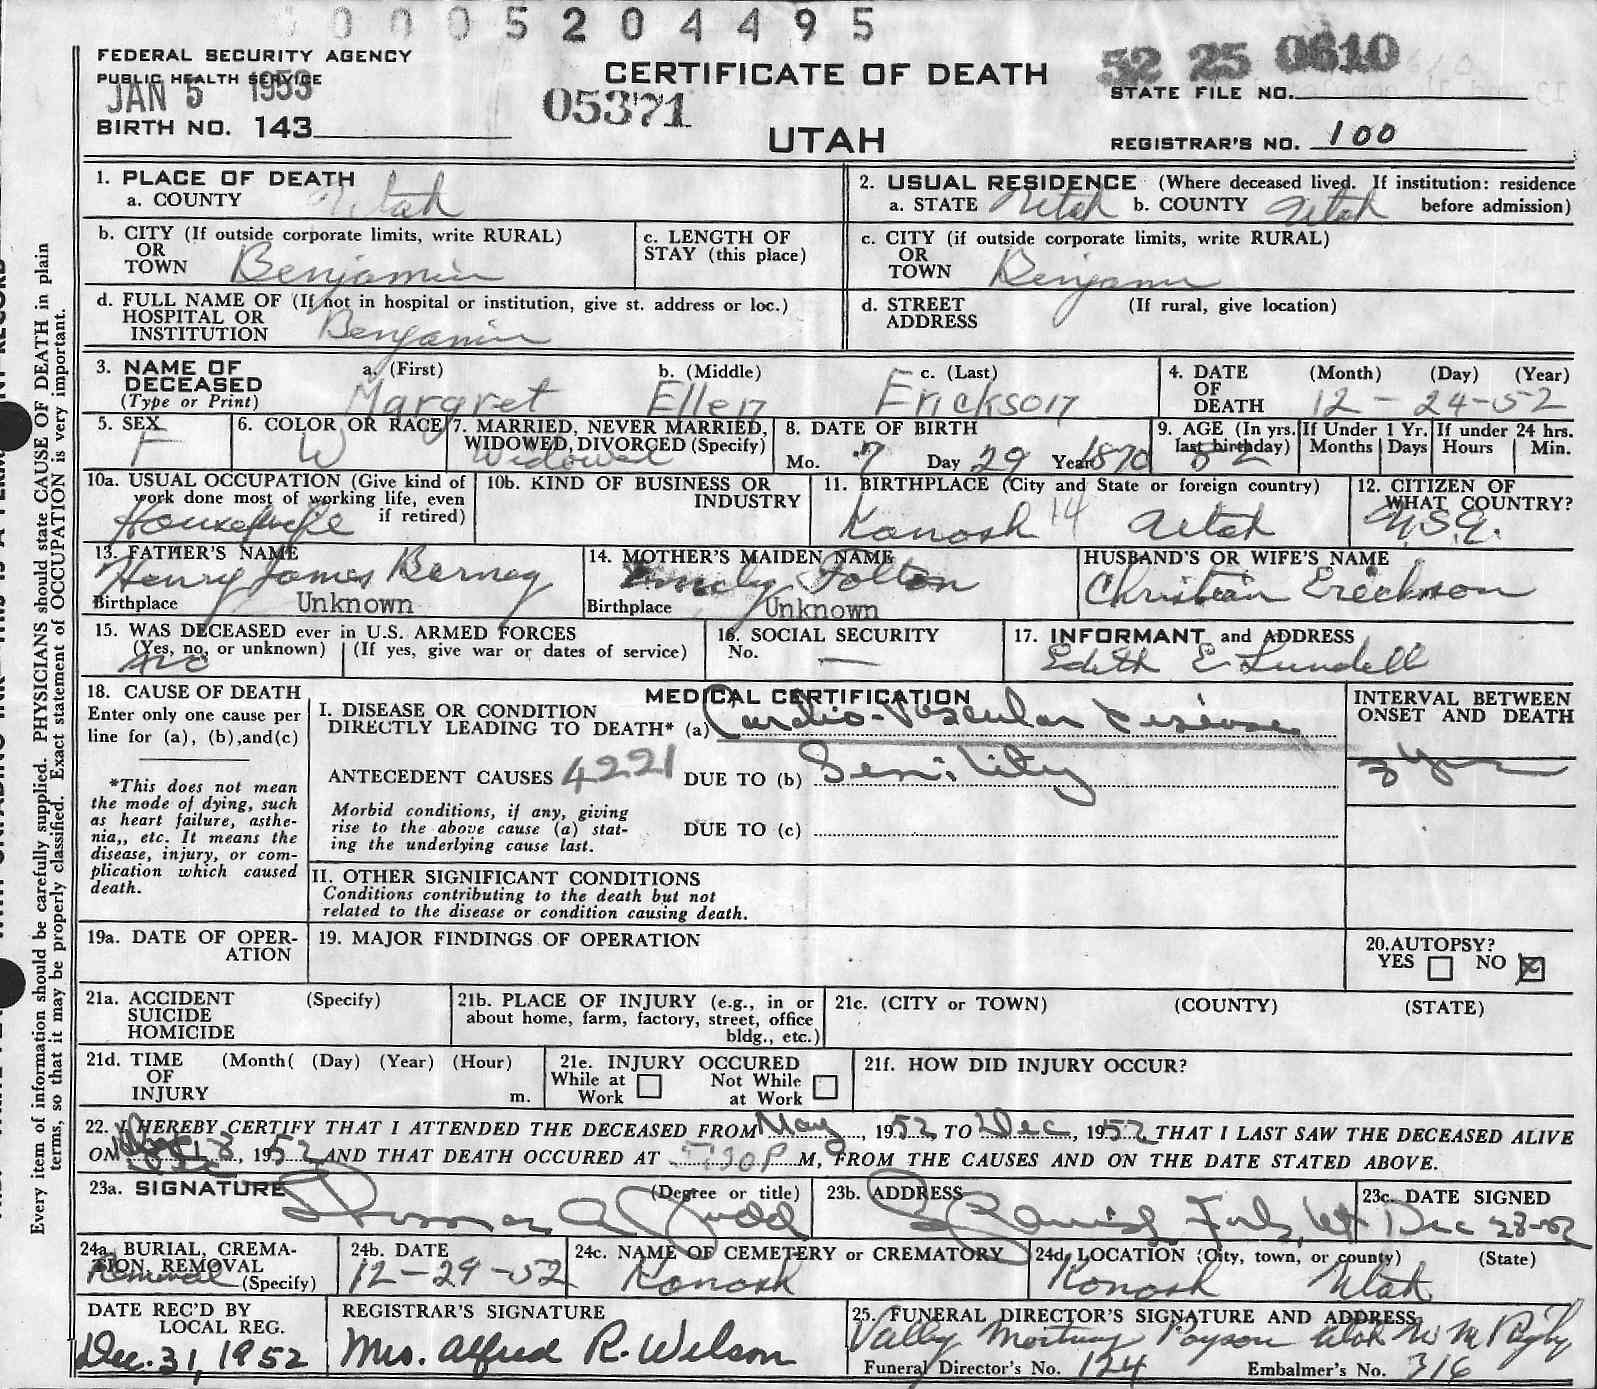 0 0 0 5 2 0 4 4 9 5
FEDERAL SECURITY AGENCY
PUBLIC HEALTH SERVICE
JAN 5 1953
BIRTH NO. 143
CERTIFICATE OF DEATH
05371
UTAH
52 25 0610
STATE FILE NO.
REGISTRAR'S NO. 100
1. PLACE OF DEATH
a. COUNTY Utah
2. USUAL RESIDENCE (Where deceased lived. If institution: residence
a. STATE Utah b. COUNTY Utah before admission)
b. CITY (If outside corporate limits, write RURAL)
OR
TOWN Benjamin
c. LENGTH OF
STAY (this place)
c. CITY (if outside corporate limits, write RURAL)
OR
TOWN Benjamin
d. FULL NAME OF (If not in hospital or institution, give st. address or loc.)
HOSPITAL OR
INSTITUTION Benjamin
d. STREET (If rural, give location)
ADDRESS
3. NAME OF
DECEASED
(Type or Print)
a. (First) b. (Middle) c. (Last)
Margret Ellen Erickson
4. DATE (Month) (Day) (Year)
OF
DEATH 12-24-52
5. SEX
F
6. COLOR OR RACE
W
7. MARRIED, NEVER MARRIED,
WIDOWED, DIVORCED (Specify)
Widowed
8. DATE OF BIRTH
Mo. 7 Day 29 Year 1870
9. AGE (In yrs.
last birthday)
82
If Under 1 Yr.
Months Days
If under 24 hrs.
Hours Min.
10a. USUAL OCCUPATION (Give kind of
work done most of working life, even
if retired)
Housewife
10b. KIND OF BUSINESS OR
INDUSTRY
11. BIRTHPLACE (City and State or foreign country)
Kanosh 14 Utah
12. CITIZEN OF
WHAT COUNTRY?
U.S.A.
13. FATHER'S NAME
Henry James Barney
Birthplace Unknown
14. MOTHER'S MAIDEN NAME
Birthplace Unknown
HUSBAND'S OR WIFE'S NAME
Christian Erickson
15. WAS DECEASED ever in U.S. ARMED FORCES
(Yes, no, or unknown) (If yes, give war or dates of service)
No
16. SOCIAL SECURITY
No. —
17. INFORMANT and ADDRESS
Edith E Lundell
18. CAUSE OF DEATH
Enter only one cause per
line for (a), (b), and (c)
*This does not mean
the mode of dying, such
as heart failure, asthe-
nia,, etc. It means the
disease, injury, or com-
plication which caused
death.
MEDICAL CERTIFICATION
I. DISEASE OR CONDITION
DIRECTLY LEADING TO DEATH* (a) Cardio-Vascular Disease
ANTECEDENT CAUSES 4221 DUE TO (b) Senility
Morbid conditions, if any, giving
rise to the above cause (a) stat-
ing the underlying cause last.
DUE TO (c)
INTERVAL BETWEEN
ONSET AND DEATH
II. OTHER SIGNIFICANT CONDITIONS
Conditions contributing to the death but not
related to the disease or condition causing death.
19a. DATE OF OPER-
ATION
19. MAJOR FINDINGS OF OPERATION
20. AUTOPSY?
YES NO X
21a. ACCIDENT (Specify)
SUICIDE
HOMICIDE
21b. PLACE OF INJURY (e.g., in or
about home, farm, factory, street, office
bldg., etc.)
21c. (CITY or TOWN) (COUNTY) (STATE)
21d. TIME (Month( (Day) (Year) (Hour)
OF
INJURY m.
21e. INJURY OCCURED
While at Work
Not While at Work
21f. HOW DID INJURY OCCUR?
22. I HEREBY CERTIFY THAT I ATTENDED THE DECEASED FROM May, 1952 TO Dec, 1952 THAT I LAST SAW THE DECEASED ALIVE
ON Dec, 1952 AND THAT DEATH OCCURED AT 5:30 P M, FROM THE CAUSES AND ON THE DATE STATED ABOVE.
23a. SIGNATURE (Degree or title)
Thomas A Judd
23b. ADDRESS
Spanish Fork, Ut
23c. DATE SIGNED
Dec 28-52
24a. BURIAL, CREMA-
TION, REMOVAL
(Specify)
Removal
24b. DATE
12-29-52
24c. NAME OF CEMETERY or CREMATORY
Kanosh
24d. LOCATION (City, town, or county) (State)
Kanosh Utah
DATE REC'D BY
LOCAL REG.
Dec. 31, 1952
REGISTRAR'S SIGNATURE
Mrs. Alfred R. Wilson
25. FUNERAL DIRECTOR'S SIGNATURE AND ADDRESS
Valley Mortuary Payson Utah
Funeral Director's No. 124 Embalmer's No. 316
Every item of information should be carefully supplied. PHYSICIANS should state CAUSE OF DEATH in plain
terms, so that it may be properly classified. Exact statement of OCCUPATION is very important.